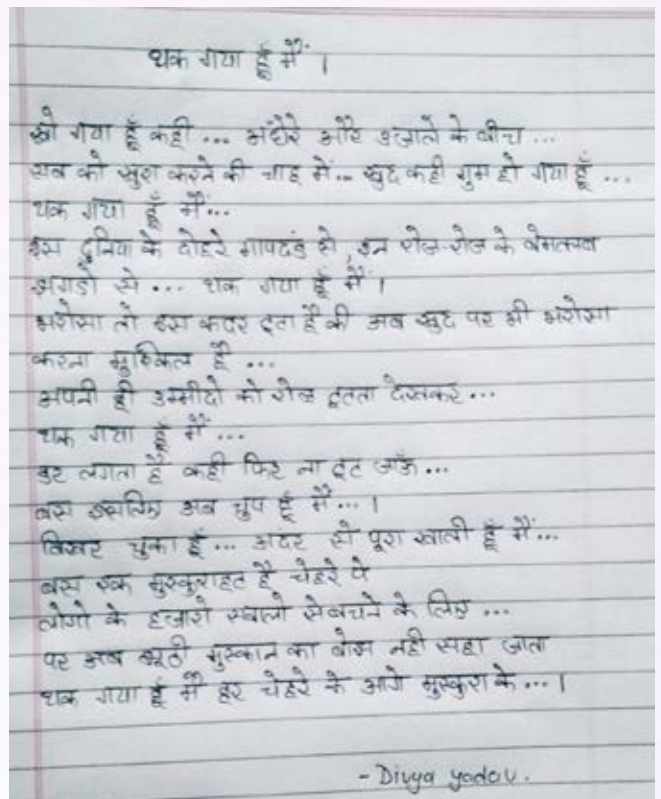 थक गया हूँ मैं ।
खो गया हूँ कही ... अंधेरे और उजाले के बीच ...
सब को खुश करने की चाह में... खुद कही गुम हो गया हूँ ...
थक गया हूँ मैं...
इस दुनिया के दोहरे मापदंड से, इन रोज-रोज के बेमतलब
झगडो से ... थक गया हूँ मैं ।
भरोसा तो इस कदर टूटा है की अब खुद पर भी भरोसा
करना मुश्किल है ...
अपनी ही उम्मीदो को रोज टूटता देखकर...
थक गया हूँ मैं ...
डर लगता है कही फिर ना टूट जाऊँ ...
बस इसलिए अब चुप हूँ मैं ... ।
बिखर चुका हूँ ... अंदर से पूरा खाली हूँ मैं...
बस एक मुस्कुराहट है चेहरे पे
लोगो के हजारो सवालो से बचने के लिए ...
पर अब झूठी मुस्कान का बोझ नही सहा जाता
थक गया हूँ मैं हर चेहरे के आगे मुस्कुरा के ... ।
- Divya yadav.